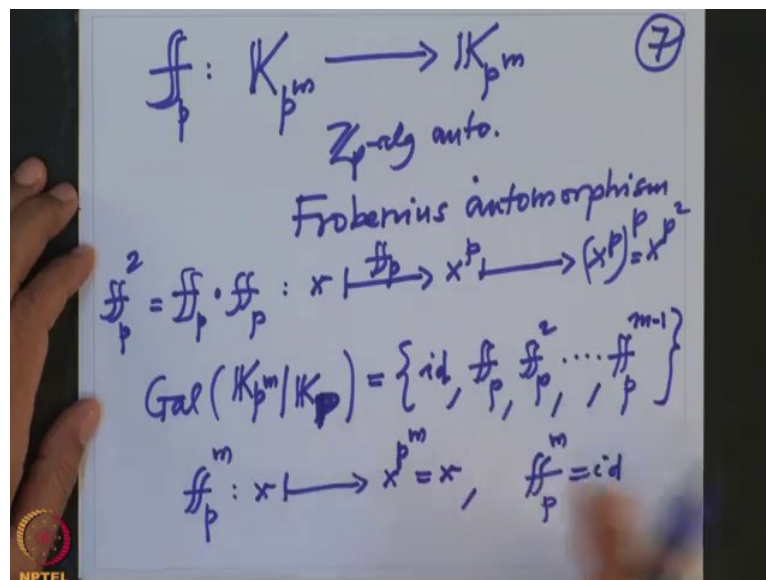 ⑦
𝕗_p : 𝕂_{p^m} ⟶ 𝕂_{p^m}
ℤ_p-alg auto.
Frobenius automorphism
𝕗_p^2 = 𝕗_p · 𝕗_p : x ⟼^{𝕗_p} x^p ⟼ (x^p)^p = x^{p^2}
Gal(𝕂_{p^m} | 𝕂_p) = {id, 𝕗_p, 𝕗_p^2, ····, 𝕗_p^{m-1}}
𝕗_p^m : x ⟼ x^{p^m} = x, 𝕗_p^m = id
NPTEL